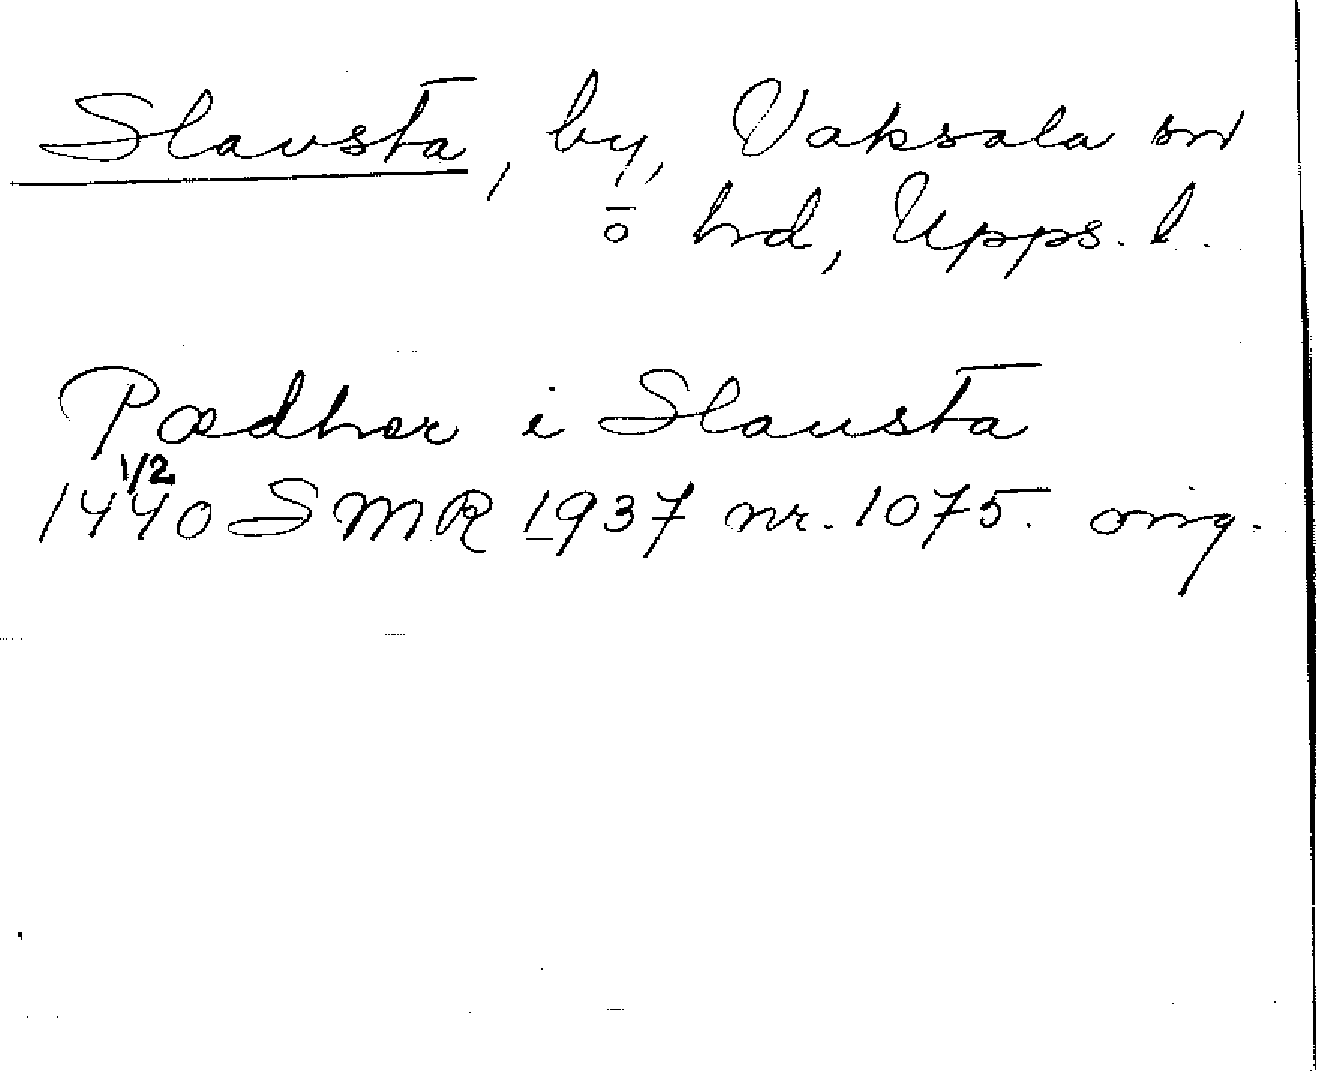 Slavsta, by, Vaksala sn
ö hd, Upps. l.
Pædher i Slausta
1/2
1440 SMR 1937 nr. 1075. orig.